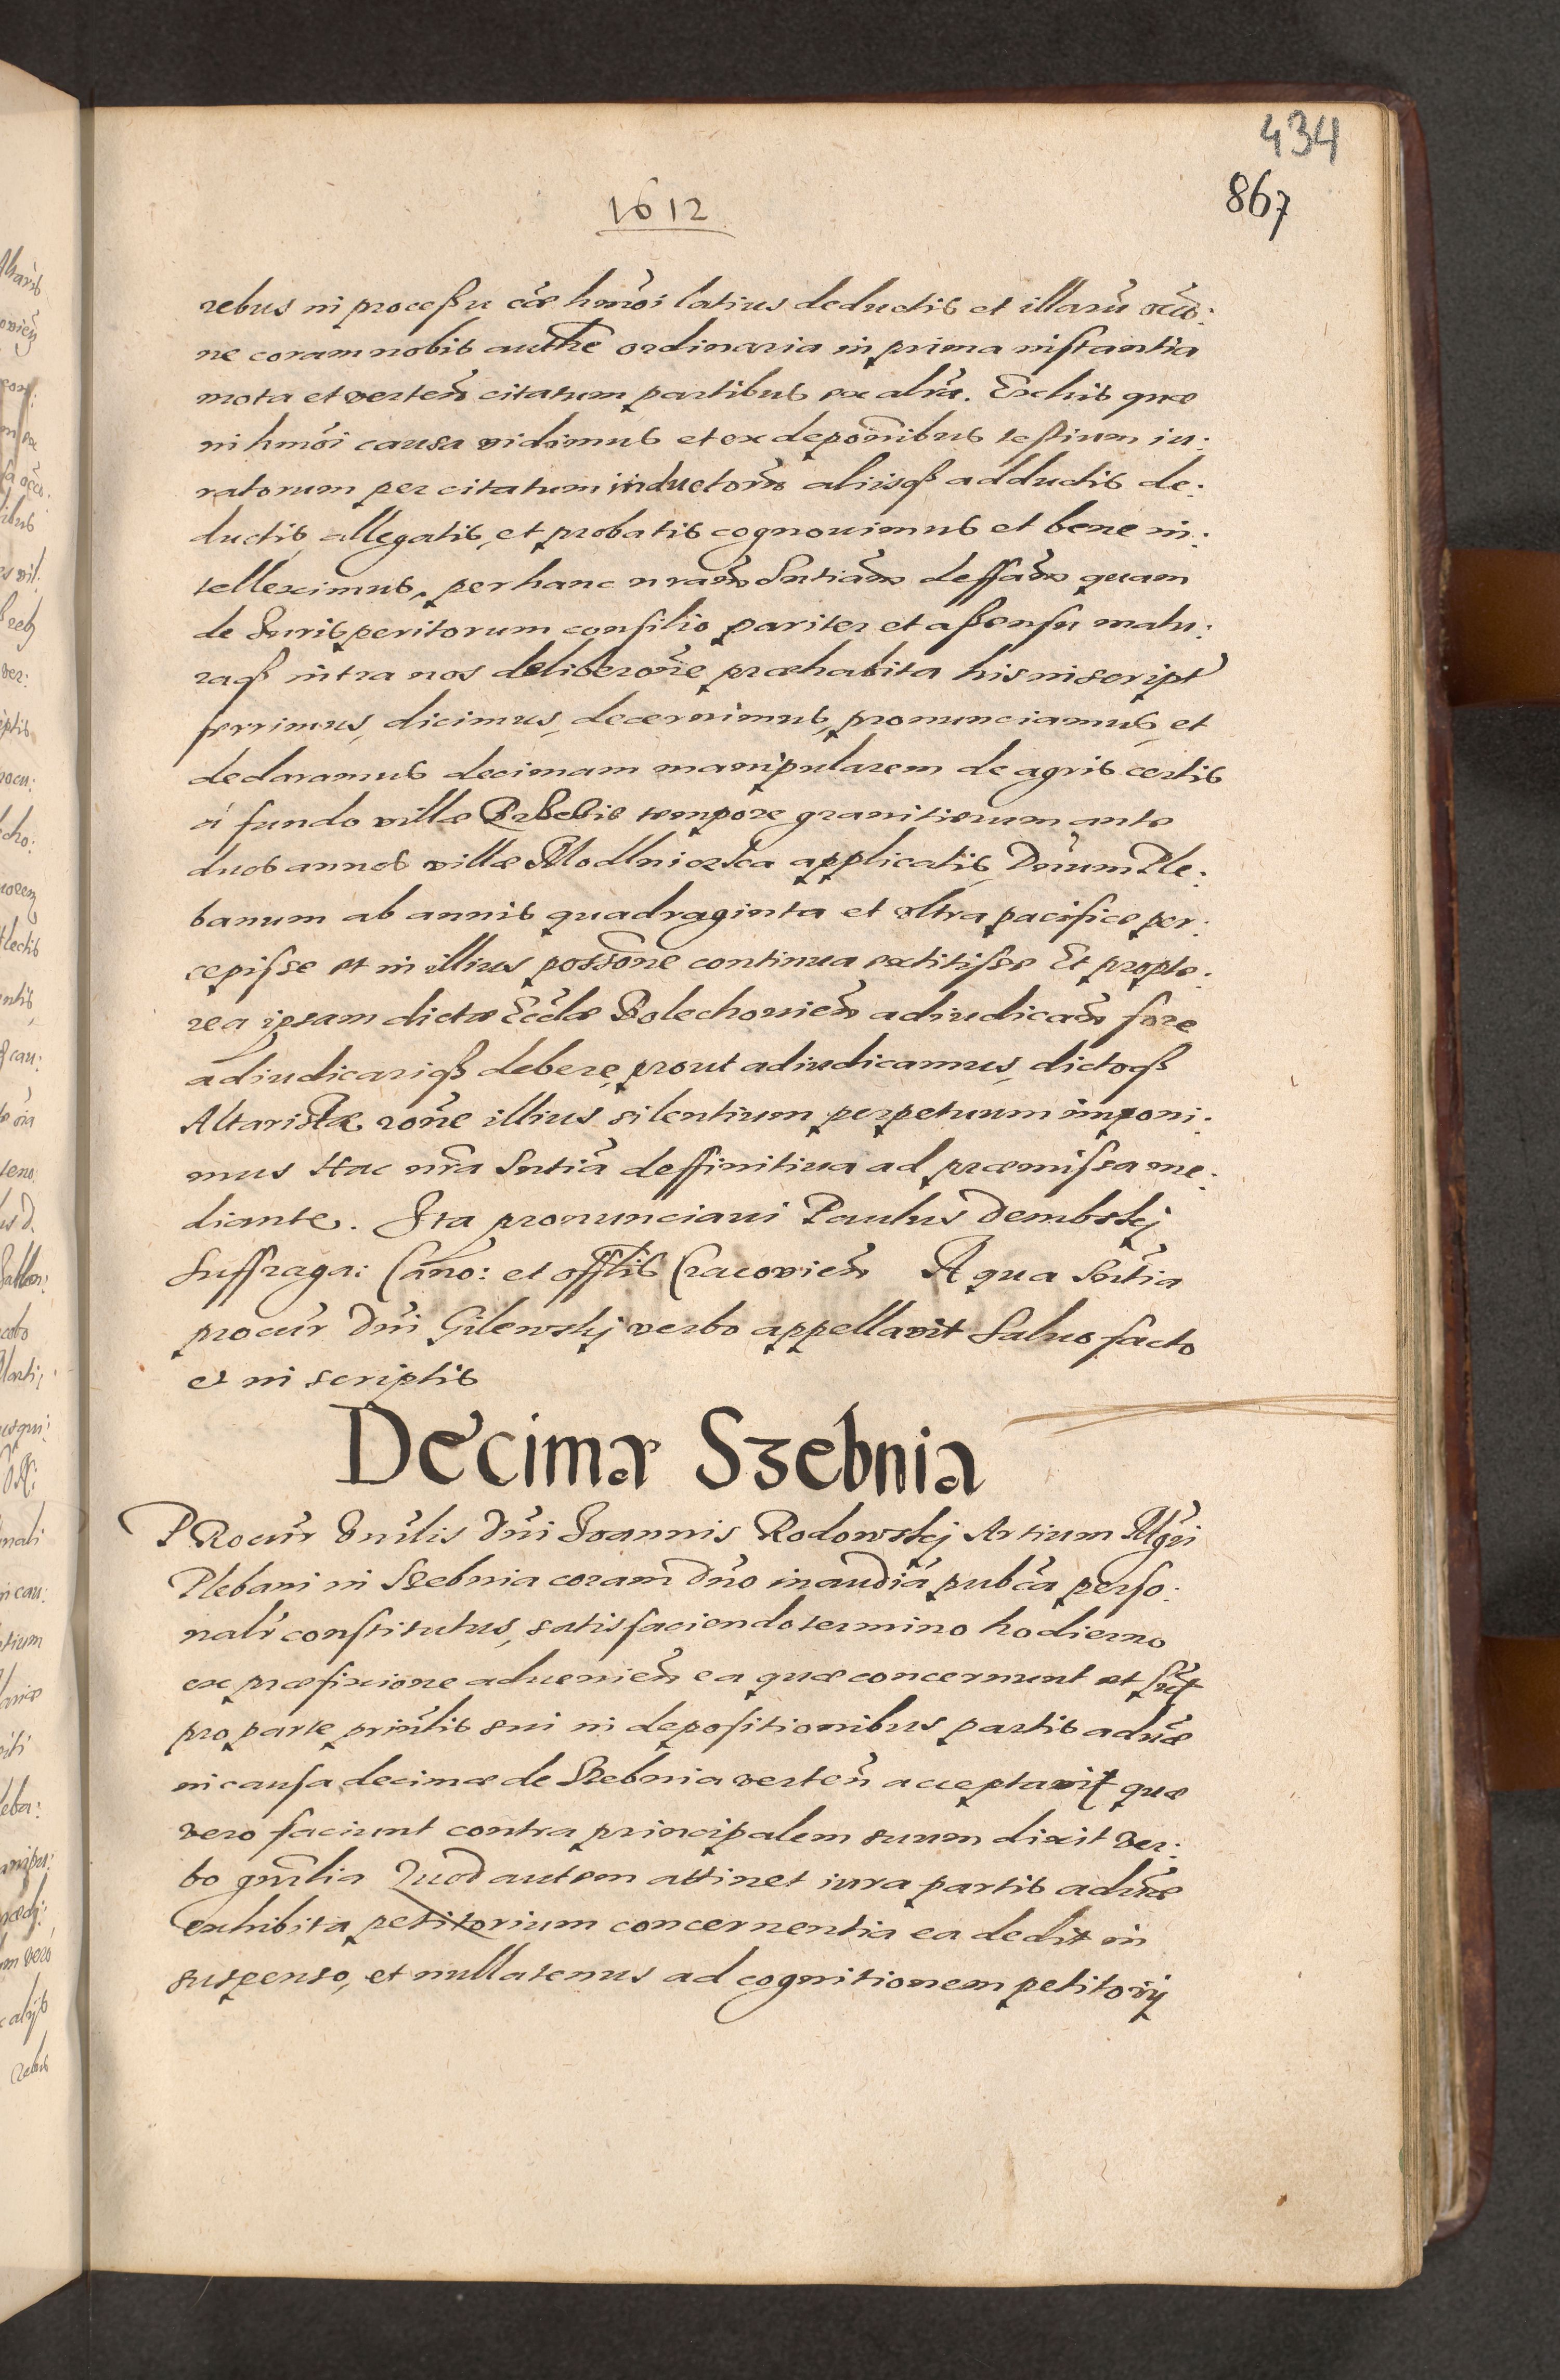 434
867
1612
rebus in processu cãe hmõi latius deductis et illarũ occõ:
ne coram nobis autħe ordinaria in prima instantia
mota et verteñ citatum partibus ex alrã. Ex his quæ
in hmõi causa vidimus et ex deponibus testium iu:
ratorum per citatum inductorũ aliisqȝ adductis de:
ductis, allegatis, et probatis cognouimus et bene in:
telleximus, per hanc nrãm Sntiam deffam quam
de Iuris peritorum consilio pariter et assensu matu:
raqȝ intra nos deliberõne præhabita his in script
ferrimus, dicimus, decernimus, pronunciamus, et
declaramus decimam manipularem de agris certis
à fundo villæ tempore granitierum ante
duos annos villæ Modlniczka applicatis, Dnum Ple:
banum ab annis quadraginta et vltra pacifice per:
cepisse et in illius possõne continua extitisse Et propte:
rea ipsam dictæ Eccłæ Bolechouieñ adiudicañ fore
adiudicariqȝ debere, prout adiudicamus, dictoqȝ
Altaristæ rõne illius silentium perpetuum imponi:
mus Hac nrã Sntiã deffinitiua ad præmissa me:
diante. Ita pronunciaui Paulus Dembskj
Suffraga: Cano: et offłis Cracouieñ A qua Sntia
procur Dni Gilewskj verbo appellavit Saluo facto
et in scriptis
Decimæ Szebnia
PRocur Dni Ioannis Rodowskj Artium Mgri
Plebani in Szebnia coram Dno in audiã pubca perso:
nalr constitutus, satisfaciendo termino hodierno
ex præfixione aduenieñ ea quæ concernunt et sunt
pro parte prinłis sui in depositionibus partis aduæ
in causa decimæ de Szebnia verteñ acceptavit quæ
vero faciunt contra principalem suum dixit ver:
bo gnrłia Quod autem attinet iura partis aduæ
exhibita petitorium concernentia ea dedit in
suspenso, et nullatenus ad cognitionem petitorij